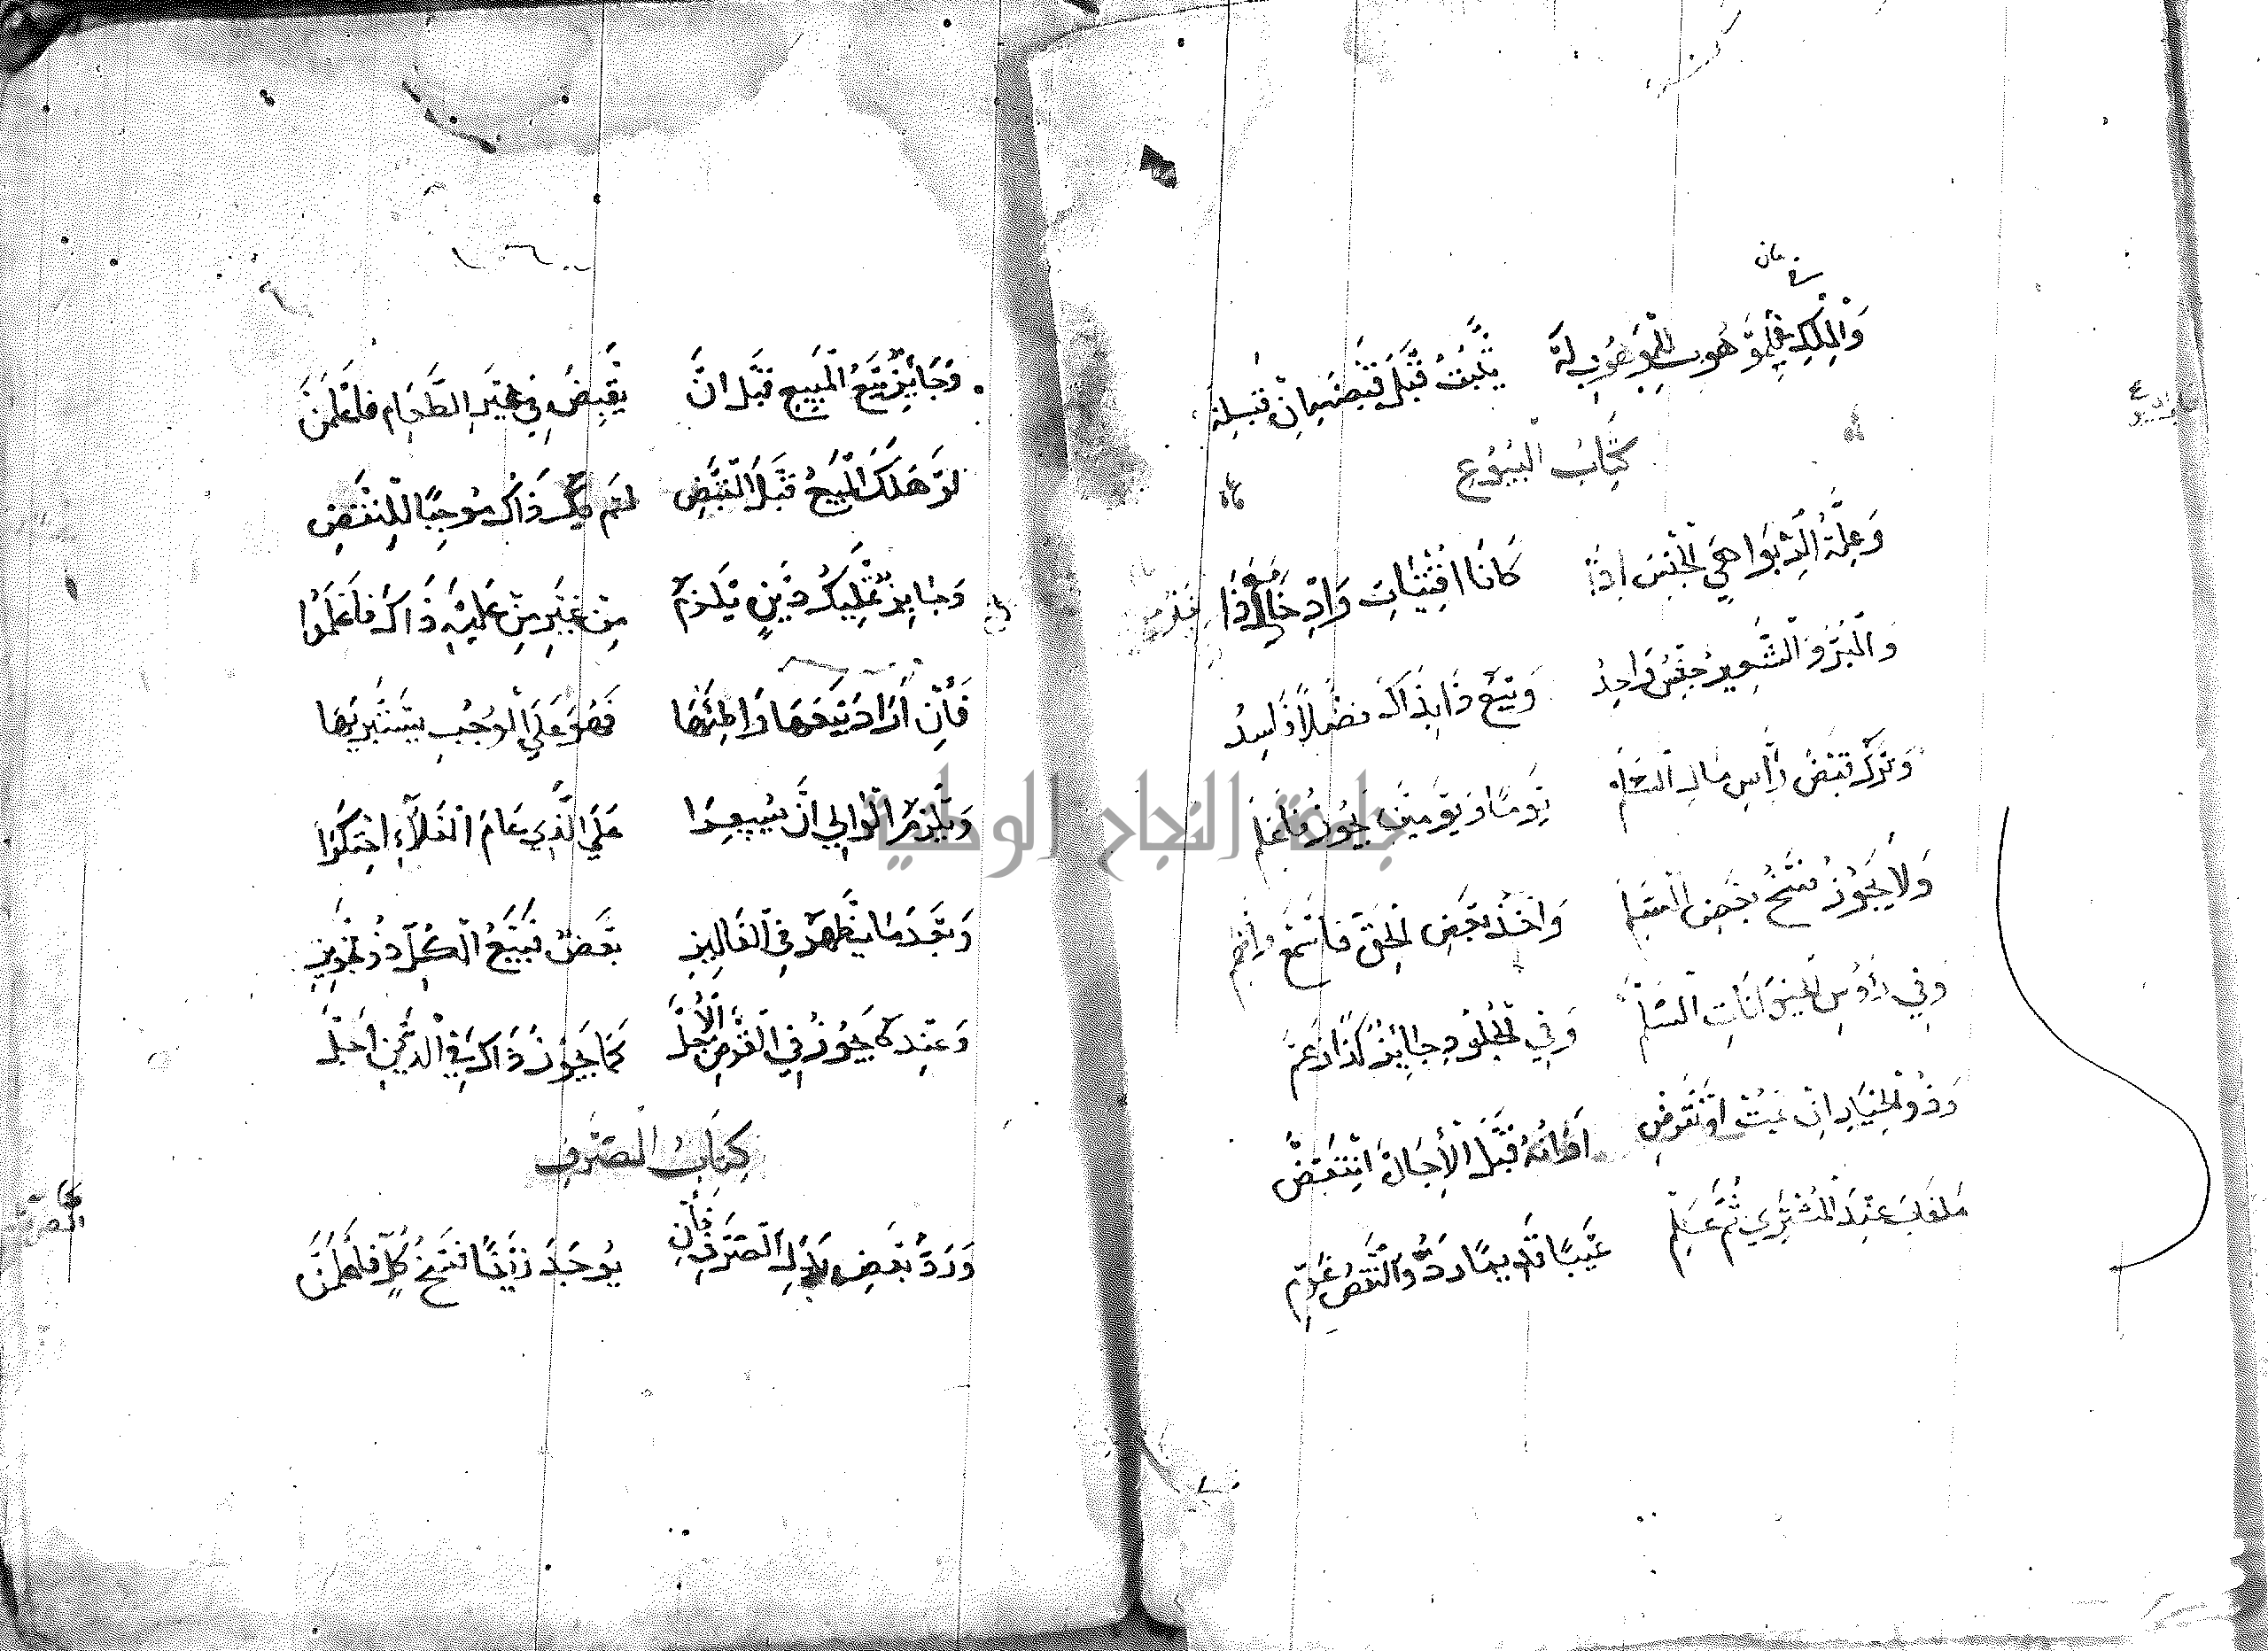 وَالْمِلْكُ فِي الْمَوْهُوبِ لِلْمَوْهُوبِ لَهْ يَثْبُتُ قَبْلَ قَبْضِهِ اِنْ قَبِلَهْ
كِتَابُ الْبُيُوعِ
وَعِلَّةُ الرِّبَوا هِيَ الْجِنْسُ اِذَا كَانَا اقْتِيَاتٍ وَادِّخَارٍ
وَالْبُرُّ وَالشَّعِيرُ جِنْسٌ وَاحِدُ وَبَيْعُ ذَا بِذَاكَ فَضْلًا فَاسِدُ
وَتَرْكُ قَبْضِ رَأْسِ مَالِ السَّلَمِ يَوْمًا وَيَوْمَيْنِ يَجُوزُ فَاعْلَمِ
وَلَا يَجُوزُ فَسْخُ بَعْضِ السَّلَمِ وَاَخْذُ بَعْضِ الْحَقِّ فَاسْمَعْ وَافْهَمِ
وَفِي رُؤُسِ الْحَيَوَانَاتِ السَّلَمْ وَفِي الْجُلُودِ جَائِزٌ كَذَا زَعَمْ
وَذُو الْخِيَارِ اِنْ يَمُتْ اَوْ تَنْقَرِضْ اَزْمَانُهُ قَبْلَ الْاِجَازَةِ انْتَقَضْ
مَا غَابَ عِنْدَ الْمُشْتَرِي ثُمَّ عَلِمْ عَيْبًا قَدِيمًا رَدَّ وَالنَّقْصَ غَرِمْ
وَجَائِزٌ بَيْعُ الْمَبِيعِ قَبْلَ اَنْ يَقْبِضَ فِي غَيْرِ الطَّعَامِ فَاعْلَمَنْ
لَوْ هَلَكَ الْمَبِيعُ قَبْلَ الْقَبْضِ لَمْ يَكُ ذَاكَ مُوجِبًا لِلنَّقْضِ
وَجَائِزٌ تَمْلِيكُ دَيْنٍ يَلْزَمُ مِنْ غَيْرِ مَنْ عَلَيْهِ ذَاكَ فَاعْلَمُوا
فَاِنْ اَرَادَ بَيْعَهَا وَاطِئُهَا فَهُوَ عَلَى الْوُجُوبِ يَسْتَبْرِيهَا
وَيَلْزَمُ الْوَالِي اَنْ يُسَعِّرَا عَلَى الَّذِي عَامَ الْغَلَاءِ احْتَكَرَا
وَبَعْدَ مَا يَظْهَرُ فِي الْفَالِيزِ بَعْضٌ فَبَيْعُ الْكُلِّ ذُو تَجْوِيزِ
وَعِنْدَهُ يَجُوزُ فِي الْقَرْضِ الْاَجَلْ كَمَا يَجُوزُ ذَاكَ فِي الدَّيْنِ اَجَلْ
كِتَابُ الصَّرْفِ
وَرَدُّ بَعْضِ بَدَلِ الصَّرْفِ فَاِنْ يُوجَدْ زَيْفًا فَسْخُ كُلٍّ فَاعْلَمَنْ
جامعة النجاح الوطنية